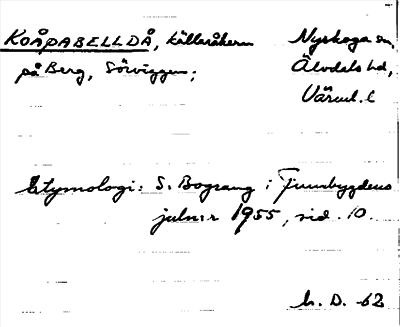 KOÅPABELLDÅ, källaråkern Nyskoga sn,
på Berg, Sörviggen; Älvdals hd,
Värml. l
Etymologi: S. Bograng i Finnbygdens
julnr 1955, sid. 10.
h. D. -62